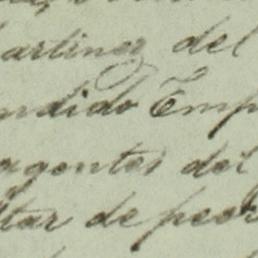 artinez del
ndido Emp
agentes del
tar de peor